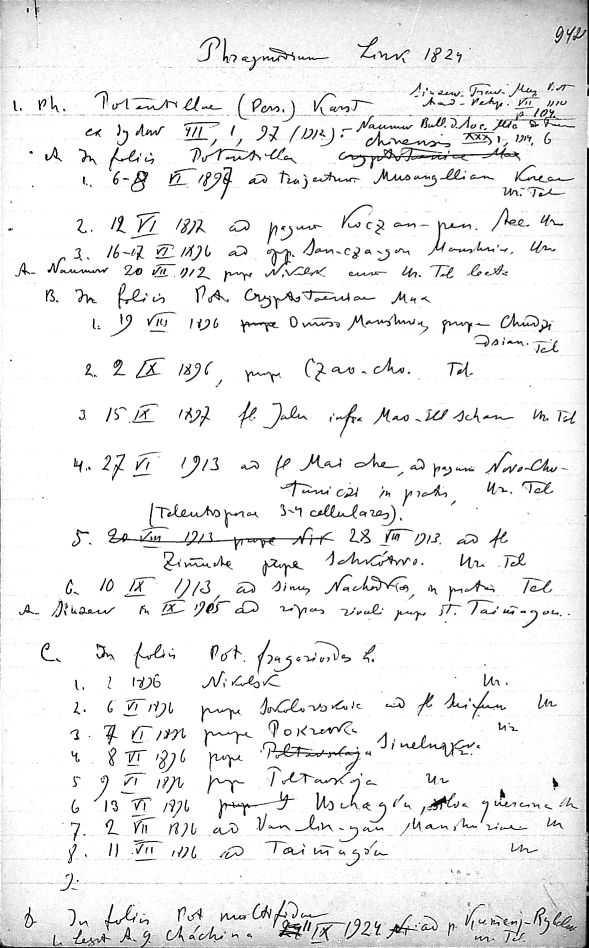 942
Phragmidium Link 1824
1. Ph. Potentillae (Pers.) Karst
ex Sydow III, 1, 97 (1912) = Naumow Bull. d. Soc.
chinensis XXX, 1, 1914, 6
A In foliis Potentilla cryptotaeniae Max
1. 6-8 VI 1897 ad trajectum Musangllian Korean
Ur. Tel
2. 12 VI 1897 ad pagum Koczan-pen. Aec. Ur
3. 16-17 VI 1896 ad opp. San-cza-gou Manshur. Ur
A. Naumow 20 VII 1912 prope Nikolsk Ur. Tel
B. In foliis Pot. Cryptotaeniae Max
1. 19 VIII 1896 prope Omoso Manshur, prope Chudzi
Dsian. Tel
2. 2 IX 1896, prope Czao-cho. Tel
3 15 IX 1897 fl Jalu infra Mao-Ell schan Ur. Tel
4. 27 VI 1913 ad fl Mai che, ad pagum Novo-Cho-
tuniczi in pratis, Ur. Tel
(Teleutosporae 3-4 cellulares).
5. 20 VIII 1913 prope Nik 28 VIII 1913. ad fl
Zimuche prope Schkotovo. Ur. Tel
6. 10 IX 1913, ad sinus Nachodka, in pratis Tel
A. Sinzew in IX 1905 ad ripas rivuli prope st. Taimagou.
C. In foliis Pot. fragarioides L.
1. ? 1896 Nikolsk Ur.
2. 6 VI 1896 prope Sokolovskoie ad fl Seifun Ur
3. 7 VI 1896 prope Pokrovka Ur
4. 8 VI 1896 prope Poltavskaja Sinelnikowa
5 9 VI 1896 prope Poltavskaja Ur
6 13 VI 1896 Uschagou, silva quercina Ur
7. 2 VII 1896 ad Van-lin-gou Manshuriae Ur
8. 11 VII 1896 ad Taimagou Ur
9.
D. In foliis Pot multifidae
1. legit A. g. Cháchina IX 1924 ad p.
Ur. Tel